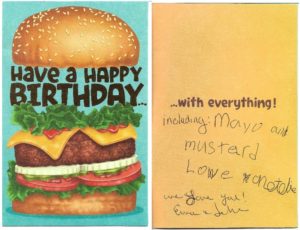 HAVE A HAPPY
BIRTHDAY...
...with everything!
including: Mayo and
mustard
Love
we love you!